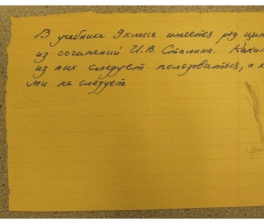 В учебнике 9 класса имеется ряд
из сочинений И.В. Сталина.
из них следует пользоваться, а
ми не следует